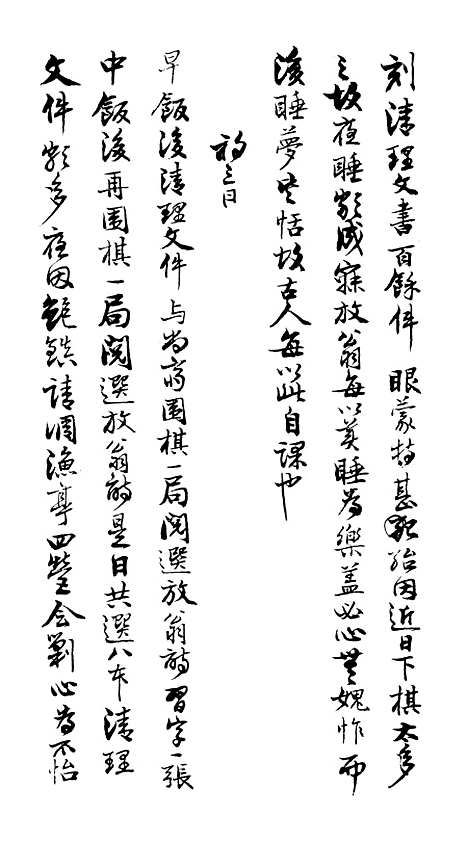 刻清理文書百餘件眼蒙特甚殆因近日下棋太多
之故夜睡頗成寐放翁每以美睡為樂蓋必心無愧怍而
後睡夢皆恬故古人每以此自課也
初三日
早飯後清理文件与尚齋圍棋一局閱選放翁詩習字一張
中飯後再圍棋一局閱選放翁詩是日共選八本清理
文件頗多夜因鮑鎮請調漁亭四營會剿心為不怡